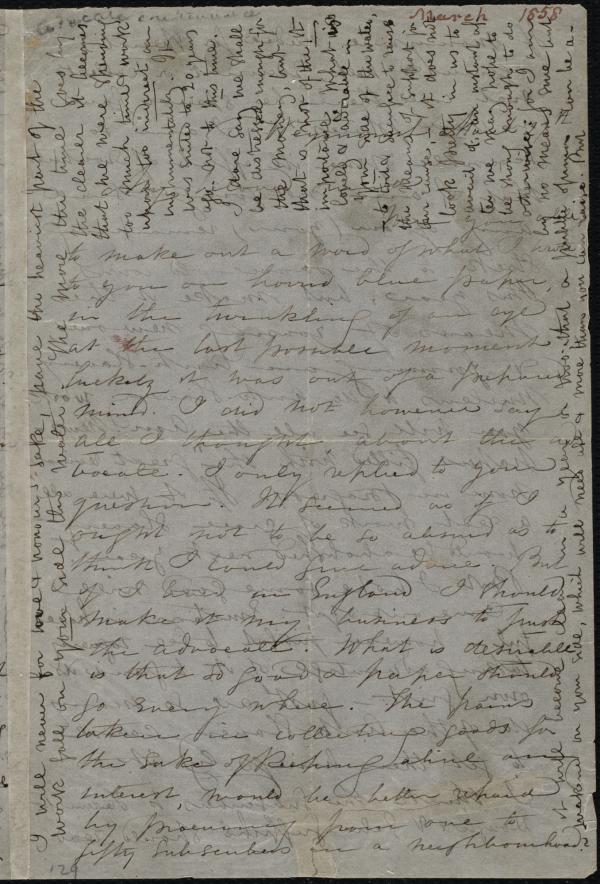 March 1858
to make out a word of what I wrote
to you on horrid blue paper,
in the twinkling of an eye
at the last possible moment
luckily it was out of a prepared
mind. I did not however say
all I thought about the ad
vocate. I only replied to your
question. It seemed as if I
ought not to be so absurd as to
think I could give advice. But
if I lived in England I should
make it my business to push
the advocate. What is desirable
is that so good a paper should
go every where. The pains
taken in collecting goods for
the sake of keeping alive an
interest, would be better repaid
by procuring from one to
fifty subscribers in a neighbourhood.
I will never for love & honour's sake, leave the heaviest part of the
work fall on your side the water! The more the time goes by
the clearer it becomes
that we were spending
too much time & work
upon too indirect an
instrumentality. It
was suited to 20 years
ago not to this time.
I dare say we shall
be distressed enough for
the money, but
that is not of the 1st
importance. What is
lovely & desirable in
your side of the water,
to tender service to raise
the means of support for
our cause,
look pretty in us to
we may hope to
be strong enough to do
otherwise; for I am
by no means sure but
it will become clear in a year or two that a
awakened on your side, which will need all & more than you can raise. But
129